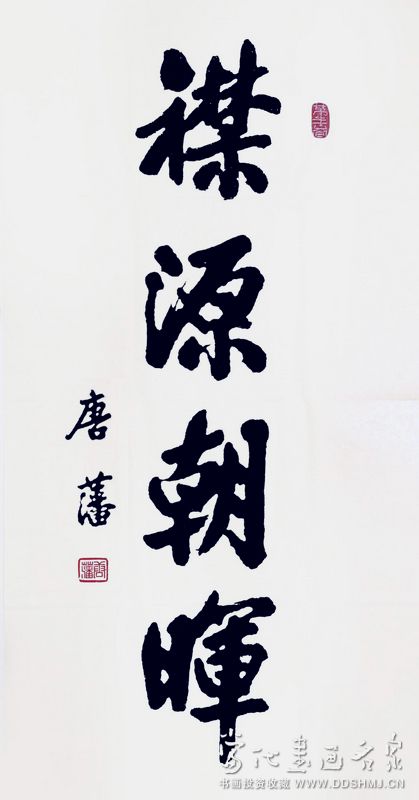 源朝暉
唐藩
唐藩
當代書畫名家
书画投资收藏 WWW.DDSHMJ.CN